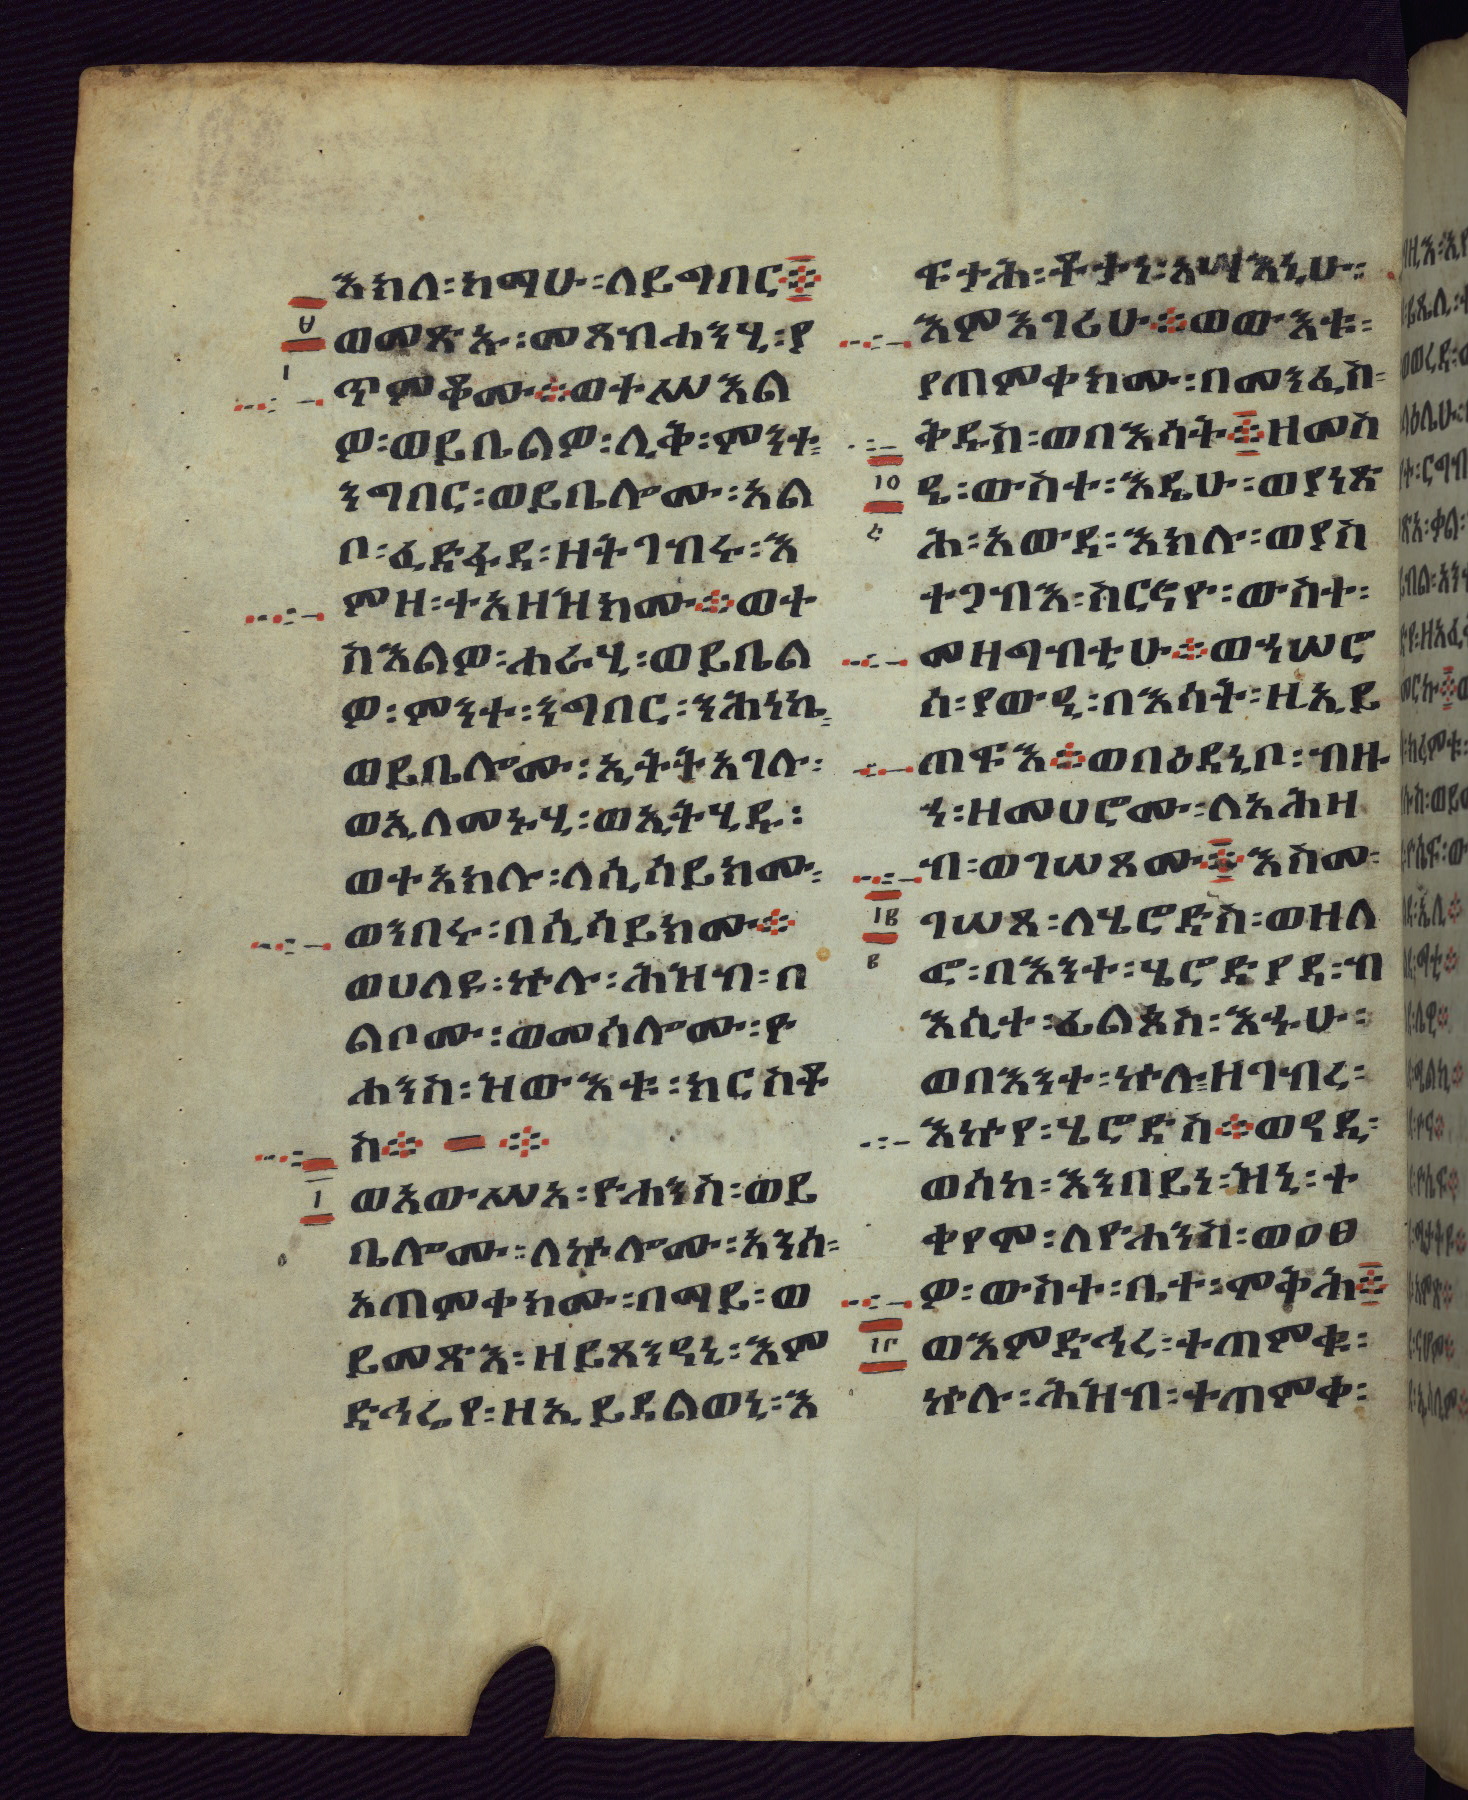 እክለ፡ከማሁ፡ለይግበር፨
፱
፩
ወመጽኡ፡መጸብሐንሂ፡ያ
ጥምቆሙ፨ወተሥእል
ዎ፡ወይቤልዎ፡ሊቅ፡ምንተ፡
ንግበር፡ወይቤሎሙ፡አል
ቦ፡ፈድፋደ፡ዘትገብሩ፡እ
ምዘ፡ተአዘዝክሙ፨ወተ
ስእልዎ፡ሐራሂ፡ወይቤል
ዎ፡ምንተ፡ንግበር፡ንሕነኒ፡
ወይቤሎሙ፡ኢትትአገሉ፡
ወኢለመኑሂ፡ወኢትሂዱ፡
ወተአክሉ፡ለሲሳይክሙ፡
ወንበሩ፡በሲሳይክሙ፨
ወሀለዩ፡ኵሉ፡ሕዝብ፡በ
ልቦሙ፡ወመሰሎሙ፡ዮ
ሐንስ፡ዝውእቱ፡ክርስቶ
ስ፨ ፨
፲
ወአውሥአ፡ዮሐንስ፡ወይ
ቤሎሙ፡ለኵሎሙ፡አንሰ፡
አጠምቀክሙ፡በማይ፡ወ
ይመጽእ፡ዘይጸንዓኒ፡እም
ድኅሬየ፡ዘኢይደልወኒ፡እ
ፍታሕ፡ቶታነ፡አሣእኒሁ፡
እምእገሪሁ፨ወውእቱ፡
ያጠምቀክሙ፡በመንፈስ፡
ቅዱስ፡ወበእሳት፨ዘመስ
፲፩
፭
ዴ፡ውስተ፡እዴሁ፡ወያነጽ
ሕ፡አውደ፡እክሉ፡ወያስ
ተጋብእ፡ስርናዮ፡ውስተ፡
መዘግብቲሁ፨ወኀሠሮ
ሰ፡ያውዒ፡በእሳት፡ዘኢይ
ጠፍእ፨ወበዕዳኒቦ፡ብዙ
ኀ፡ዘመሀሮሙ፡ለአሕዛ
ብ፡ወገሠጾሙ፨እስመ፡
፲፪
፪
ገሠጾ፡ለሄሮድስ፡ወዘለ
ፎ፡በእንተ፡ሄሮድያዳ፡ብ
እሲተ፡ፊልጶስ፡እኁሁ፡
ወበእንተ፡ኵሉ፡ዘገብረ፡
እኩየ፡ሄሮድስ፨ወዓዲ፡
ወሰከ፡እንበይነ፡ዝኒ፡ተ
ቀየሞ፡ለዮሐንስ፡ወዐፀ
ዎ፡ውስተ፡ቤተ፡ሞቅሕ፨
፲፫
ወእምድኅረ፡ተጠምቁ፡
ኵሉ፡ሕዝብ፡ተጠምቀ፡